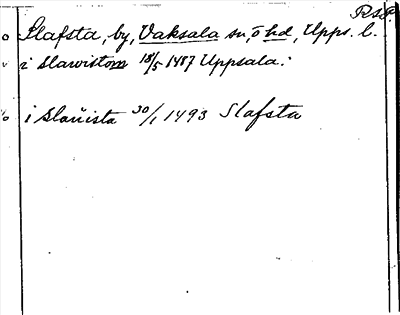 Slafsta, by, Vaksala sn, ö hd, Upps. l.
i Slawistom 18/5 1487 Uppsala.
i Slauista 30/1 1493 Slafsta